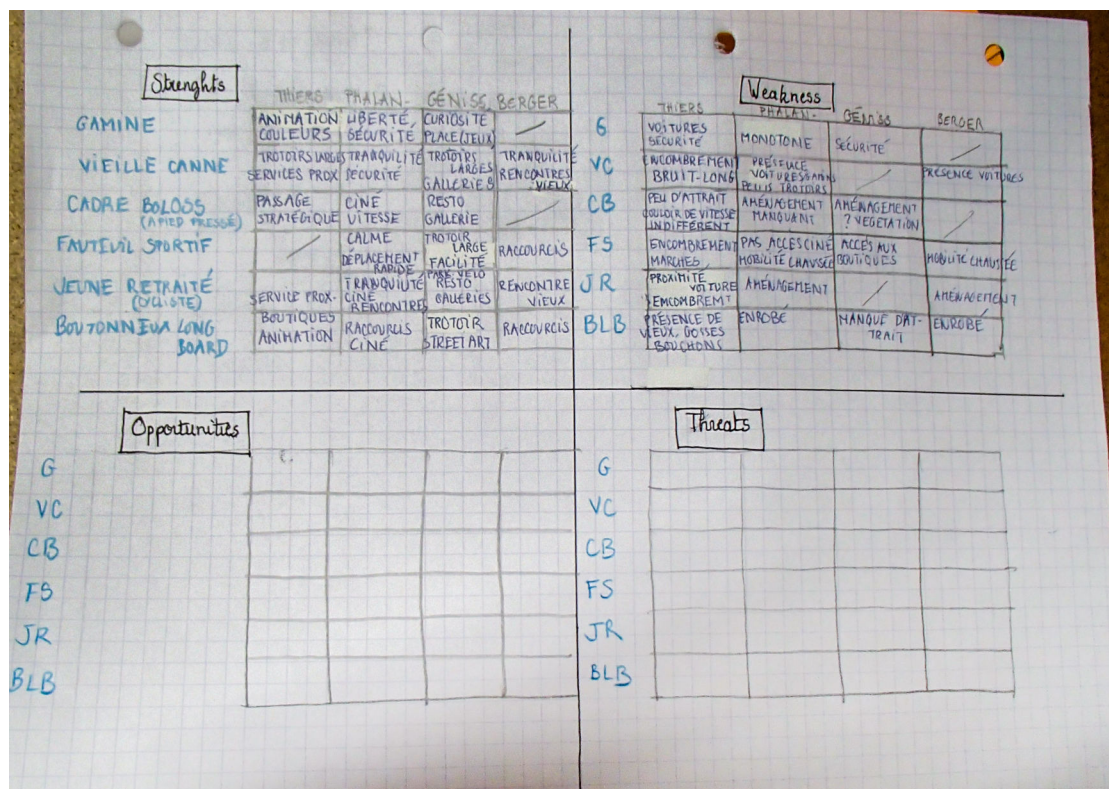 Strenghts
THIERS PHALAN. GÉNISS. BERGER
GAMINE
ANIMATION COULEURS
LIBERTÉ, SÉCURITÉ
CURIOSITÉ PLACE (JEUX)
VIEILLE CANNE
TROTOIRS LARGES SERVICES PROX
TRANQUILITÉ SÉCURITÉ
TROTOIRS LARGES GALLERIES
TRANQUILITÉ RENCONTRES VIEUX
CADRE BOLOSS
(A PIED PRESSÉ)
PASSAGE STRATÉGIQUE
CINÉ VITESSE
RESTO GALLERIE
FAUTEUIL SPORTIF
CALME DÉPLACEMENT RAPIDE
TROTOIR LARGE FACILITÉ
RACCOURCIS
JEUNE RETRAITÉ
(CYCLISTE)
SERVICE PROX.
TRANQUILITÉ CINÉ RENCONTRES
PARK VELO RESTO GALLERIES
RENCONTRE VIEUX
BOUTONNEUX LONG
BOARD
BOUTIQUES ANIMATION
RACCOURCIS CINÉ
TROTOIR STREET ART
RACCOURCIS
Weakness
THIERS PHALAN. GÉNISS BERGER
G
VOITURES SÉCURITÉ
MONOTONE
SÉCURITÉ
VC
ENCOMBREMENT BRUIT-LONG
PRÉSENCE VOITURES
PETITS TROTOIRS
PRÉSENCE VOITURES
CB
PEU D'ATTRAIT COULOIR DE VITESSE INDIFFÉRENT
AMÉNAGEMENT MANQUANT
AMÉNAGEMENT ? VEGETATION
FS
ENCOMBREMENT MARCHES
PAS ACCES CINÉ MOBILITÉ CHAUSSÉE
ACCÈS AUX BOUTIQUES
MOBILITÉ CHAUSSÉE
JR
PROXIMITÉ VOITURE EMCOMBREMT
AMÉNAGEMENT
AMÉNAGEMENT
BLB
PRÉSENCE DE VIEUX, GOSSES BOUCHONS
ENROBÉ
MANQUE D'AT-TRAIT
ENROBÉ
Opportunities
G
VC
CB
FS
JR
BLB
Threats
G
VC
CB
FS
JR
BLB